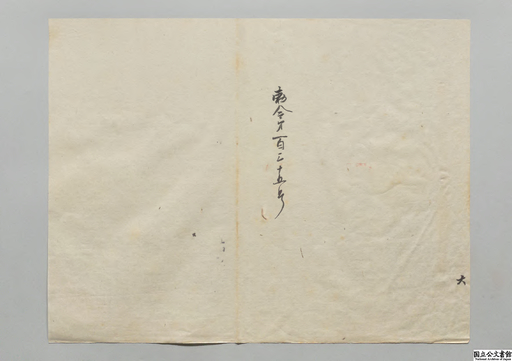 勅令第百二十五号
大
国立公文書館
National Archives of Japan